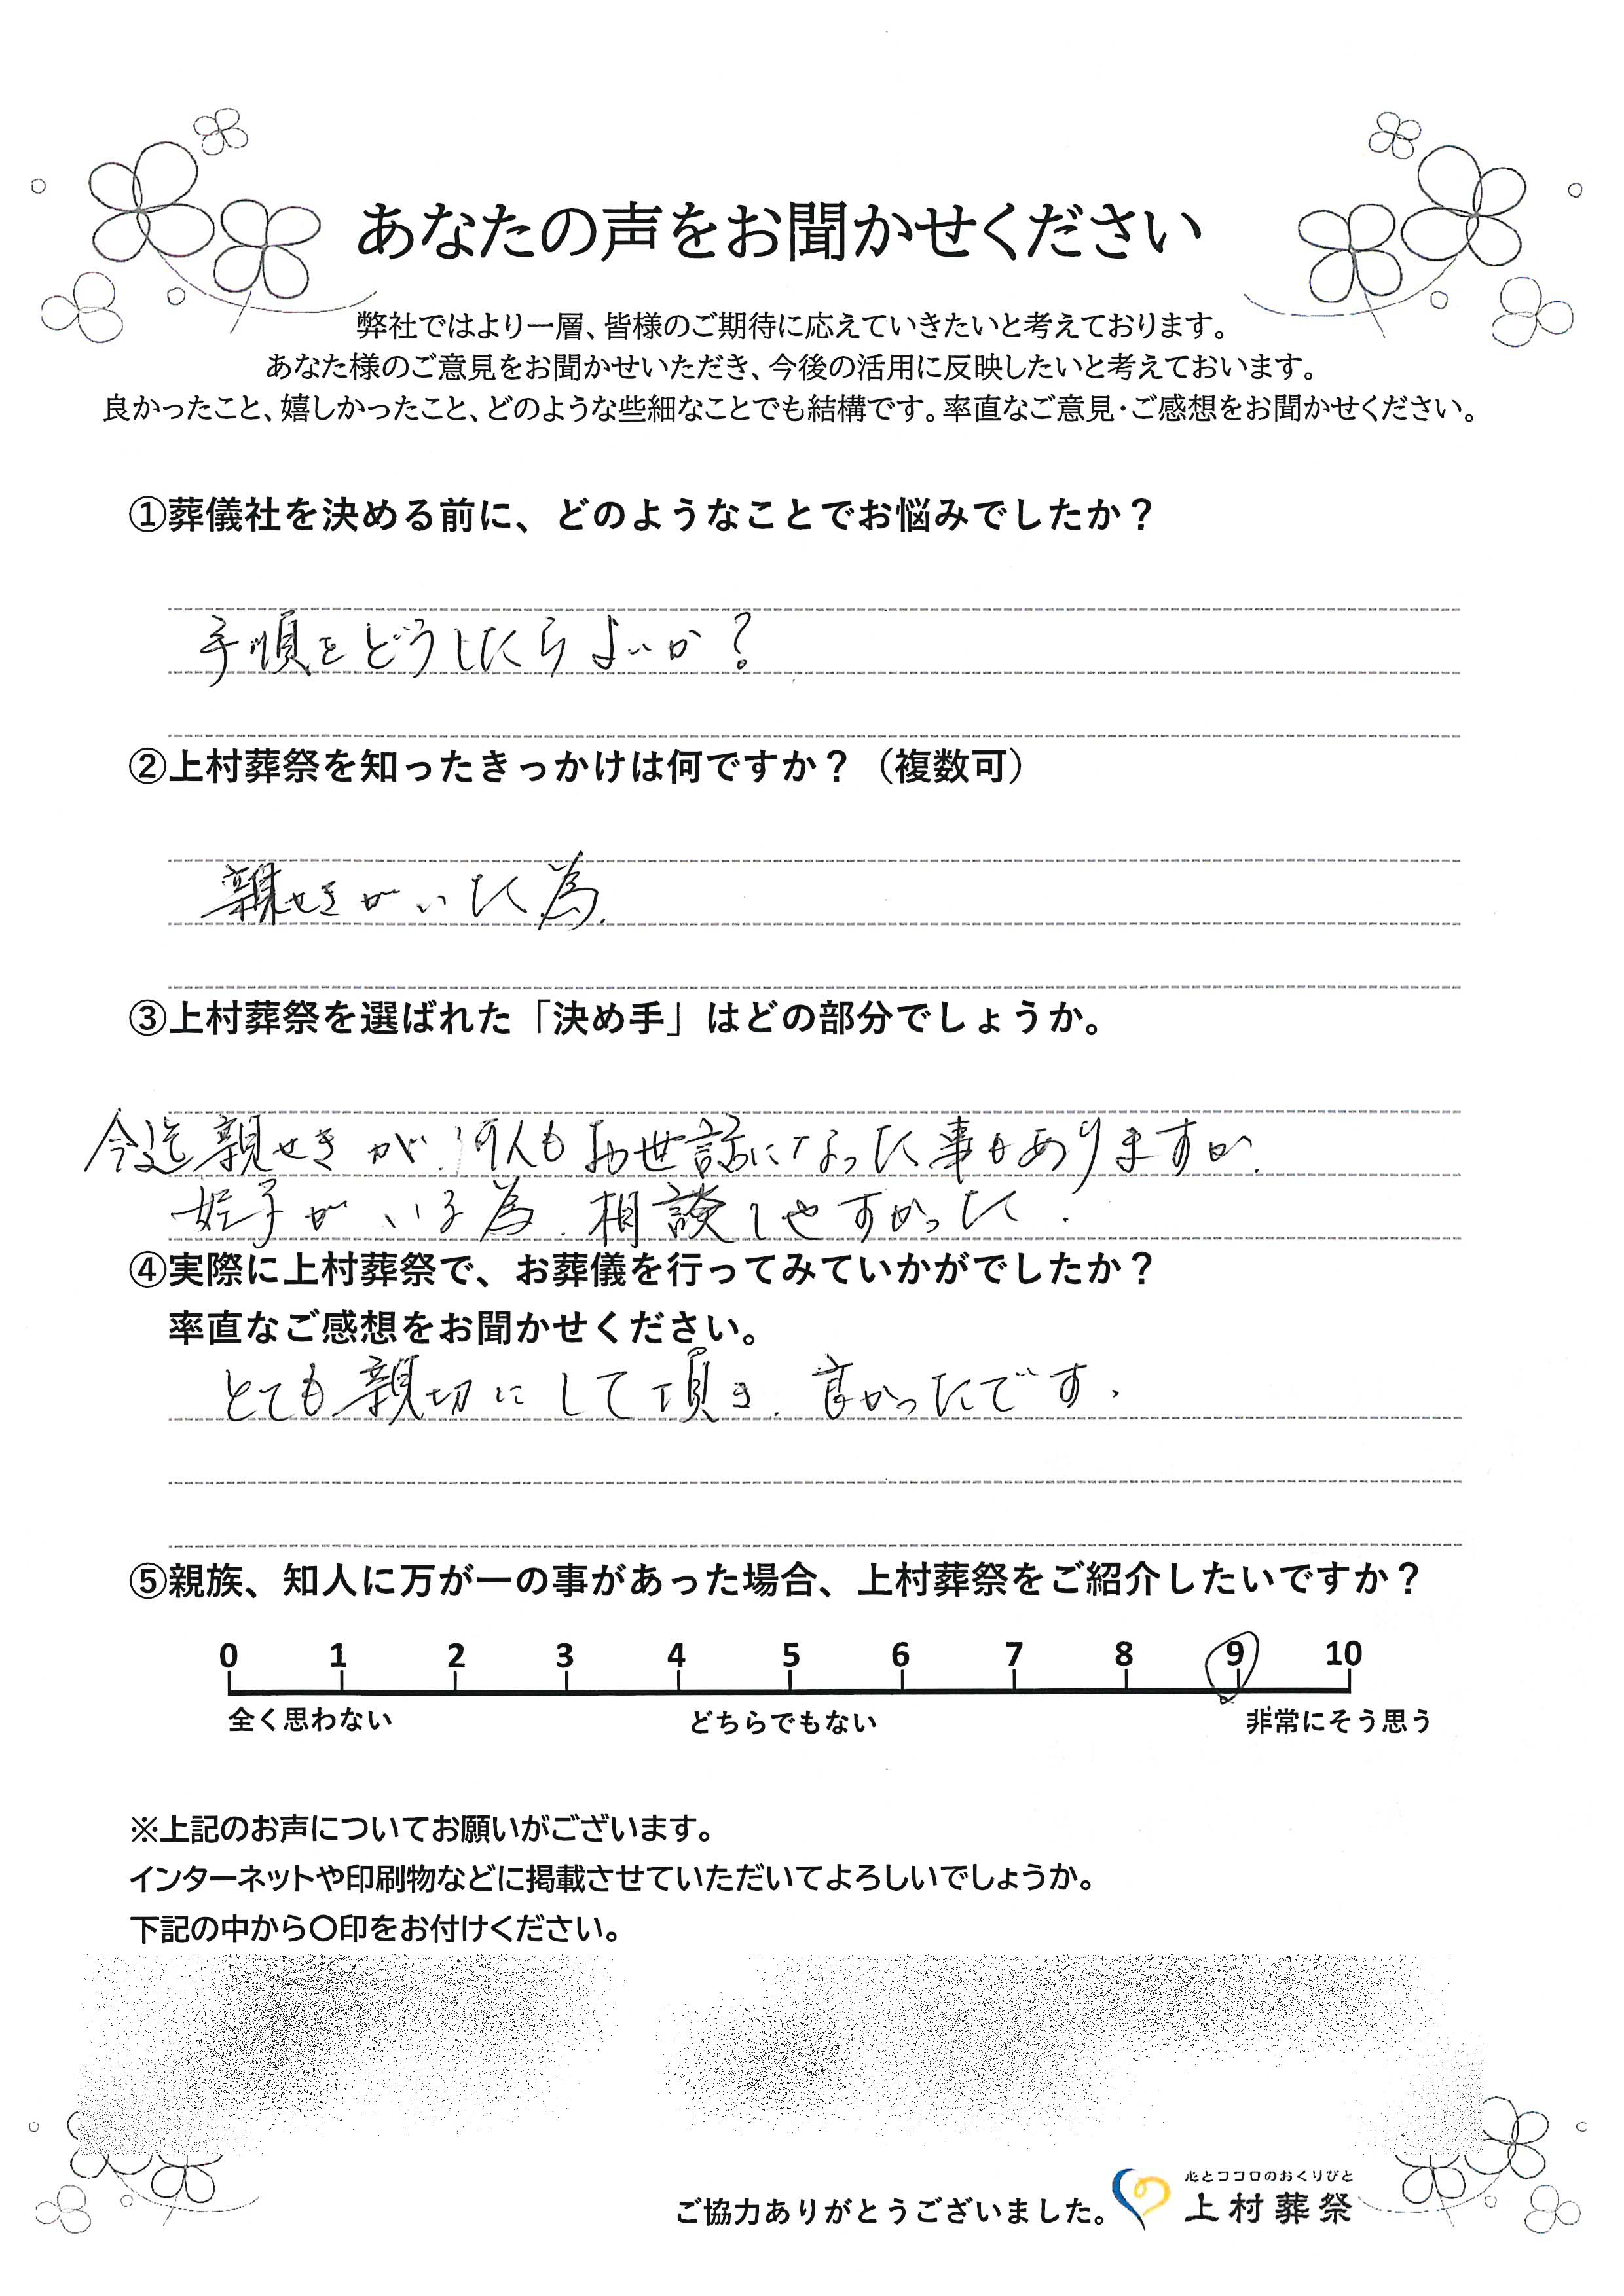 あなたの声をお聞かせください
弊社ではより一層、皆様のご期待に応えていきたいと考えております。
あなた様のご意見をお聞かせいただき、今後の活用に反映したいと考えておいます。
良かったこと、嬉しかったこと、どのような些細なことでも結構です。率直なご意見・ご感想をお聞かせください。
①葬儀社を決める前に、どのようなことでお悩みでしたか？
手順をどうしたらよいか？
②上村葬祭を知ったきっかけは何ですか？（複数可）
親せきがいた為.
③上村葬祭を選ばれた「決め手」はどの部分でしょうか。
今迄親せきが何人もお世話になった事もありますが.
姪子がいる為.相談しやすかった.
④実際に上村葬祭で、お葬儀を行ってみていかがでしたか？
率直なご感想をお聞かせください。
とても親切にして頂き.良かったです.
⑤親族、知人に万が一の事があった場合、上村葬祭をご紹介したいですか？
0 1 2 3 4 5 6 7 8 9 10
全く思わない どちらでもない 非常にそう思う
※上記のお声についてお願いがございます。
インターネットや印刷物などに掲載させていただいてよろしいでしょうか。
下記の中から〇印をお付けください。
心とココロのおくりびと
ご協力ありがとうございました。 上村葬祭